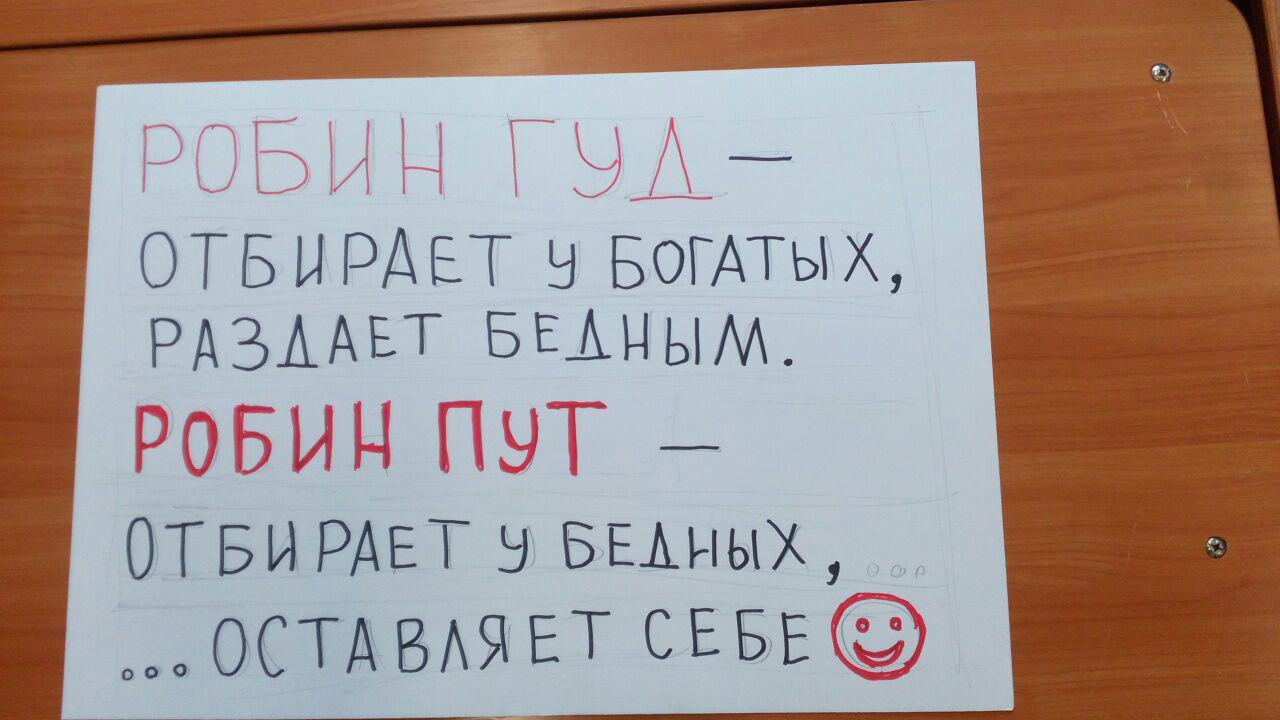 РОБИН ГУД —
ОТБИРАЕТ У БОГАТЫХ,
РАЗДАЕТ БЕДНЫМ.
РОБИН ПУТ —
ОТБИРАЕТ У БЕДНЫХ, ...
...ОСТАВЛЯЕТ СЕБЕ